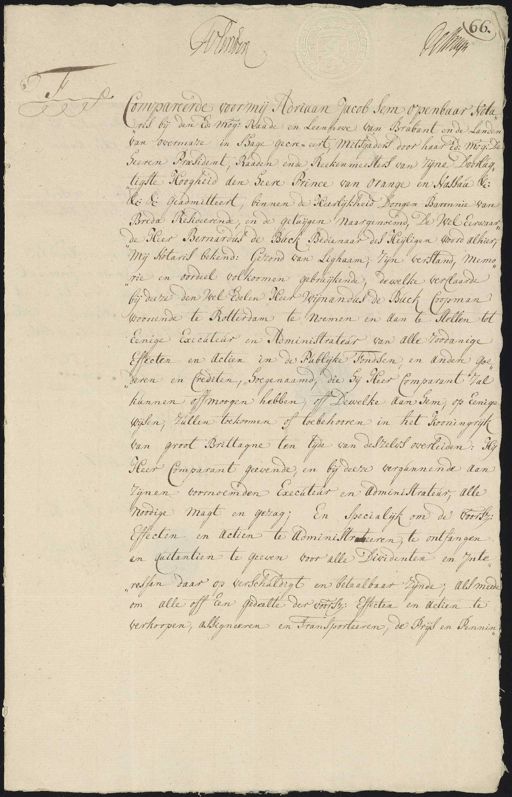 66.
Compareerde voor mij Adriaan Jacob Sem openbaar Nota
ris bij den Ed: Mog: Raade en Leenhove van Braband en de Landen
van overmaze in 'sHage geën-eert, Mitsgaders door haar Ed: Mog: De
Heeren President, Raaden en Reekenmeesters van Zijne Doorlug
tigste Hoogheid den Heere Prince van Orange en Nassau &:
&: &: Geadmitteert, binnen de Heerlijkheid Dongen Baronnie van
Breda Resideerende, en de getuijgen Naargenoemd, De Wel Eerwaar
de Heer Bernardus de Buck Bedienaar des Heijligen Woord alhier,
Mij Notaris bekend: Gezond van Lighaam; Zijn verstand, Memo
rie en oordeel volkomen gebruijkende, dewelke verklaarde
bij deeze den Wel Edelen Heer Wijnandus de Buck Coopman
woonende te Rotterdam te Noemen en aan te Stellen tot
Eenige Executeur en Administrateur van alle zoodanige
Effecten en Actien in de Publijke Fondsen, en andere goe
deren en Crediten, hoegenaamd, die hij Heer Comparant Zal
kunnen off mogen hebben, off Dewelke aan hem, op Eenige
wijsen, Zullen toekomen of toebehooren in het Koningrijk
van groot Brittagne ten tijde van deszelvs overleiden: Hij
Heer Comparant geevende, en bij deeze vergunnende aan
Zijnen voornoemden Executeur en Administrateur, alle
Noodige Magt en gezag; En Specialijk om de voorsz:
Effecten en Actien te Administreeren, te ontfangen
en quitantien te geeven voor alle Dividenten en Inte
ressen daar op verschuldigt en betaalbaar Zijnde; als meede
om alle off Een gedeelte der voorsz: Effecten en Actien te
verkoopen, assigneeren en Transporteeren, de Prijs en Pennin